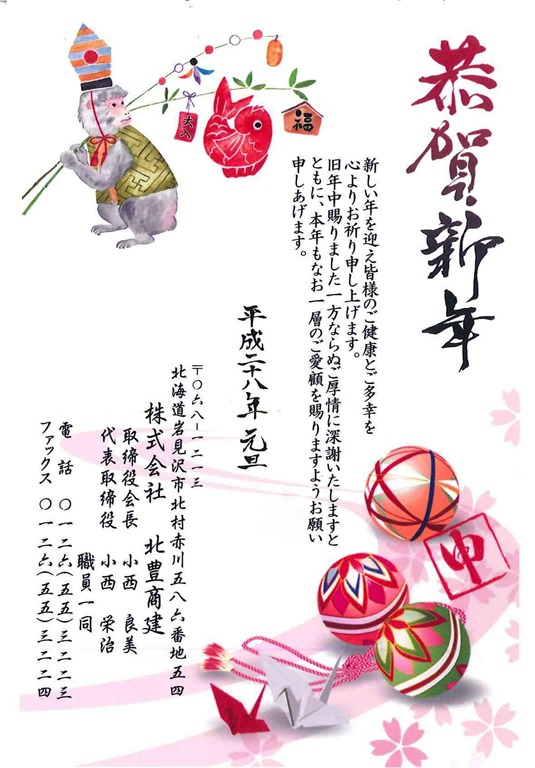 恭賀新年
新しい年を迎え皆様のご健康とご多幸を
心よりお祈り申し上げます。
旧年中賜りました一方ならぬご厚情に深謝いたしますと
ともに、本年もなお一層のご愛顧を賜りますようお願い
申しあげます。
平成二十八年 元旦
〒〇六八ー一二一三
北海道岩見沢市北村赤川五八六番地五四
株式会社 北豊商建
取締役会長 小西 良美
代表取締役 小西 栄治
職員一同
電話 〇一二六(五五)三二二三
ファックス 〇一二六(五五)三二二四
大入
福
申